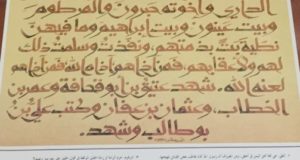 الداري وإخوته حبرون والمرطوم
وبيت عينون وبيت إبراهيم وما فيهن
نطية بت بذمتهم ونفذت وسلمت ذلك
لهم ولأعقابهم فمن آذاهم آذاه الله فمن آذاهم
لعنه الله شهد عتيق بن أبو قحافة وعمر بن
الخطاب وعثمان بن عفان وكتب علي بن
بوطالب وشهد